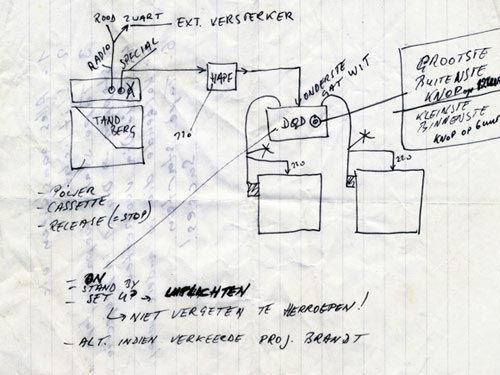 ROOD
ZWART
EXT. VERSTERKER
RADIO
SPECIAL
HAPE
220
TAND
BERG
ONDERSTE
GAT WIT
DOD
220
220
GROOTSTE
BUITENSTE
KNOP op
KLEINSTE
BINNENSTE
KNOP OP
- POWER
- CASSETTE
- RELEASE (= STOP)
- ON
- STAND BY
- SET UP → UITLICHTEN
↳ NIET VERGETEN TE HERROEPEN!
- ALT. INDIEN VERKEERDE PROJ. BRANDT